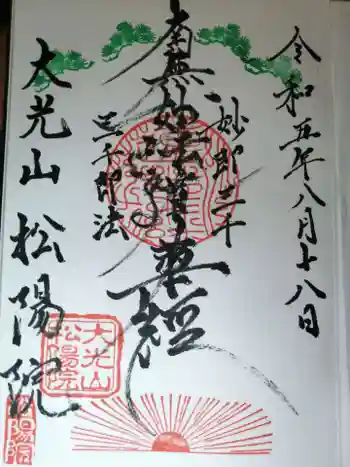 令和五年八月十八日
妙即三千
南無妙法蓮華経
三千即法
大光山松陽院
大光山
松陽院